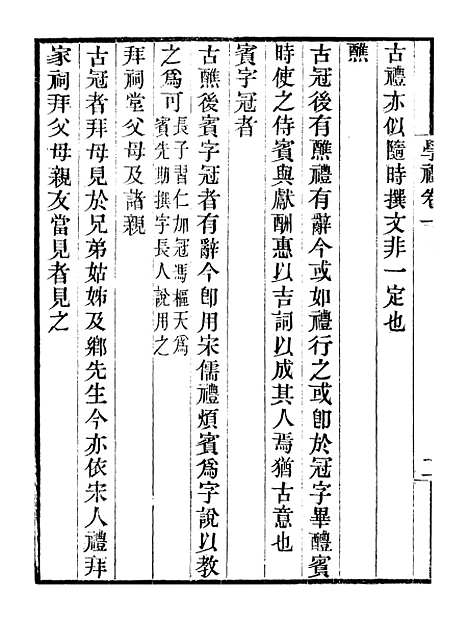 學禮卷一
二
古禮亦似隨時撰文非一定也
醮
古冠後有醮禮有辭今或如禮行之或卽於冠字畢醴賓
時使之侍賓與獻酬惠以吉詞以成其人焉猶古意也
賓字冠者
古醮後賓字冠者有辭今卽用宋儒禮煩賓爲字說以教
之爲可長子習仁加冠馮樞天爲
賓先助撰字長人說用之
拜祠堂父母及諸親
古冠者拜母見於兄弟姑姊及鄉先生今亦依宋人禮拜
家祠拜父母親友當見者見之